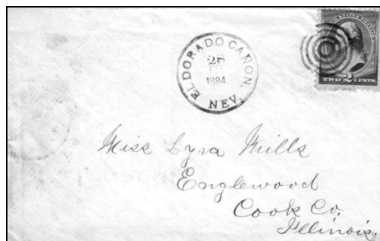 EL DORADO CAÑON,
26
1884
NEV.
TWO 2 CENTS
Miss Lyra Mills
Englewood
Cook Co,
Illinois.